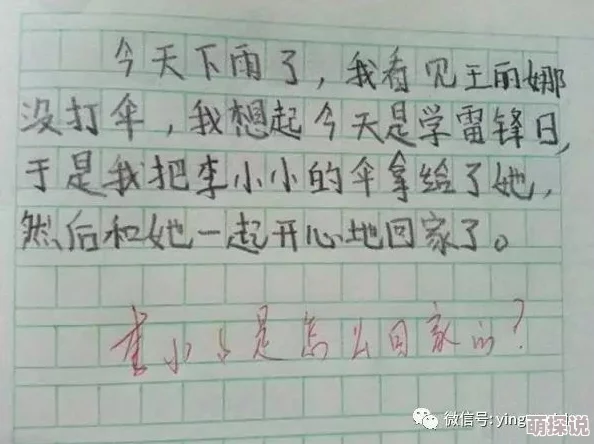 今天下雨了，我看见王丽娜
没打伞，我想起今天是学雷锋日，
于是我把李小小的伞拿给了她，
然后和她一起开心地回家了。
李小小是怎么回家的？
微信号:ying
萌探说